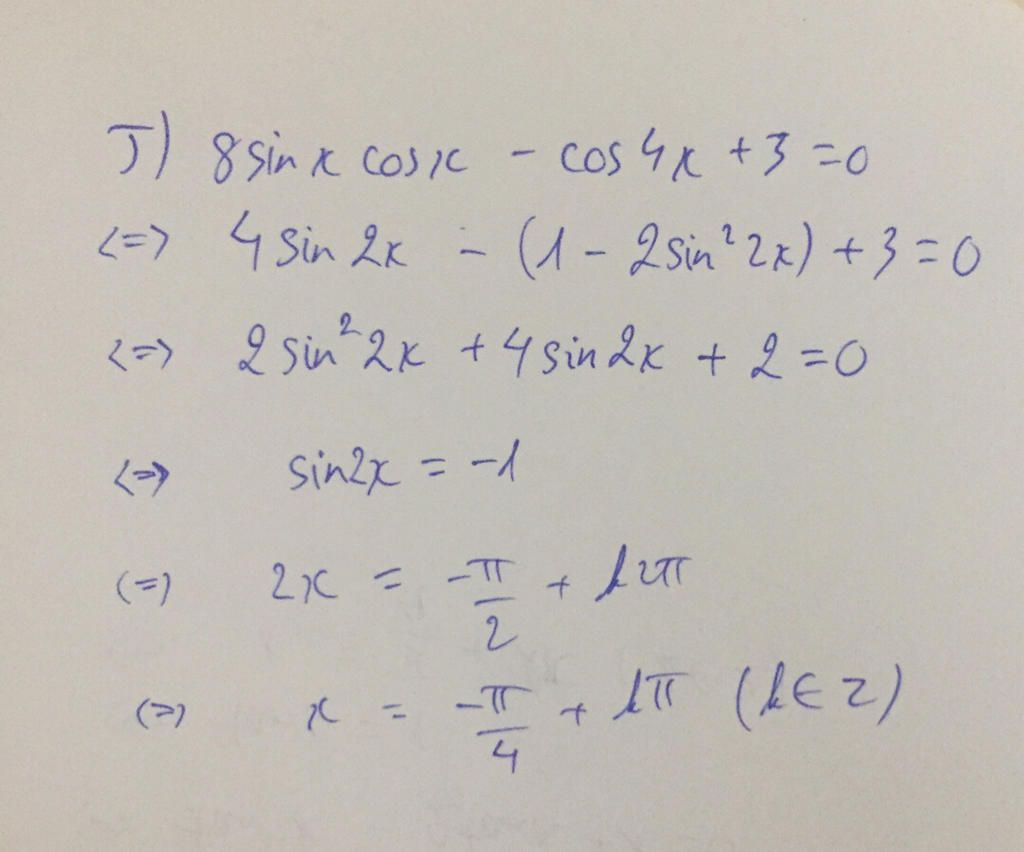 J) 8 sin x cos x - cos 4x + 3 = 0
<=> 4 sin 2x - (1 - 2 sin² 2x) + 3 = 0
<=> 2 sin² 2x + 4 sin 2x + 2 = 0
<=> sin2x = -1
<=> 2x = -π/2 + k2π
<=> x = -π/4 + kπ (k ∈ Z)